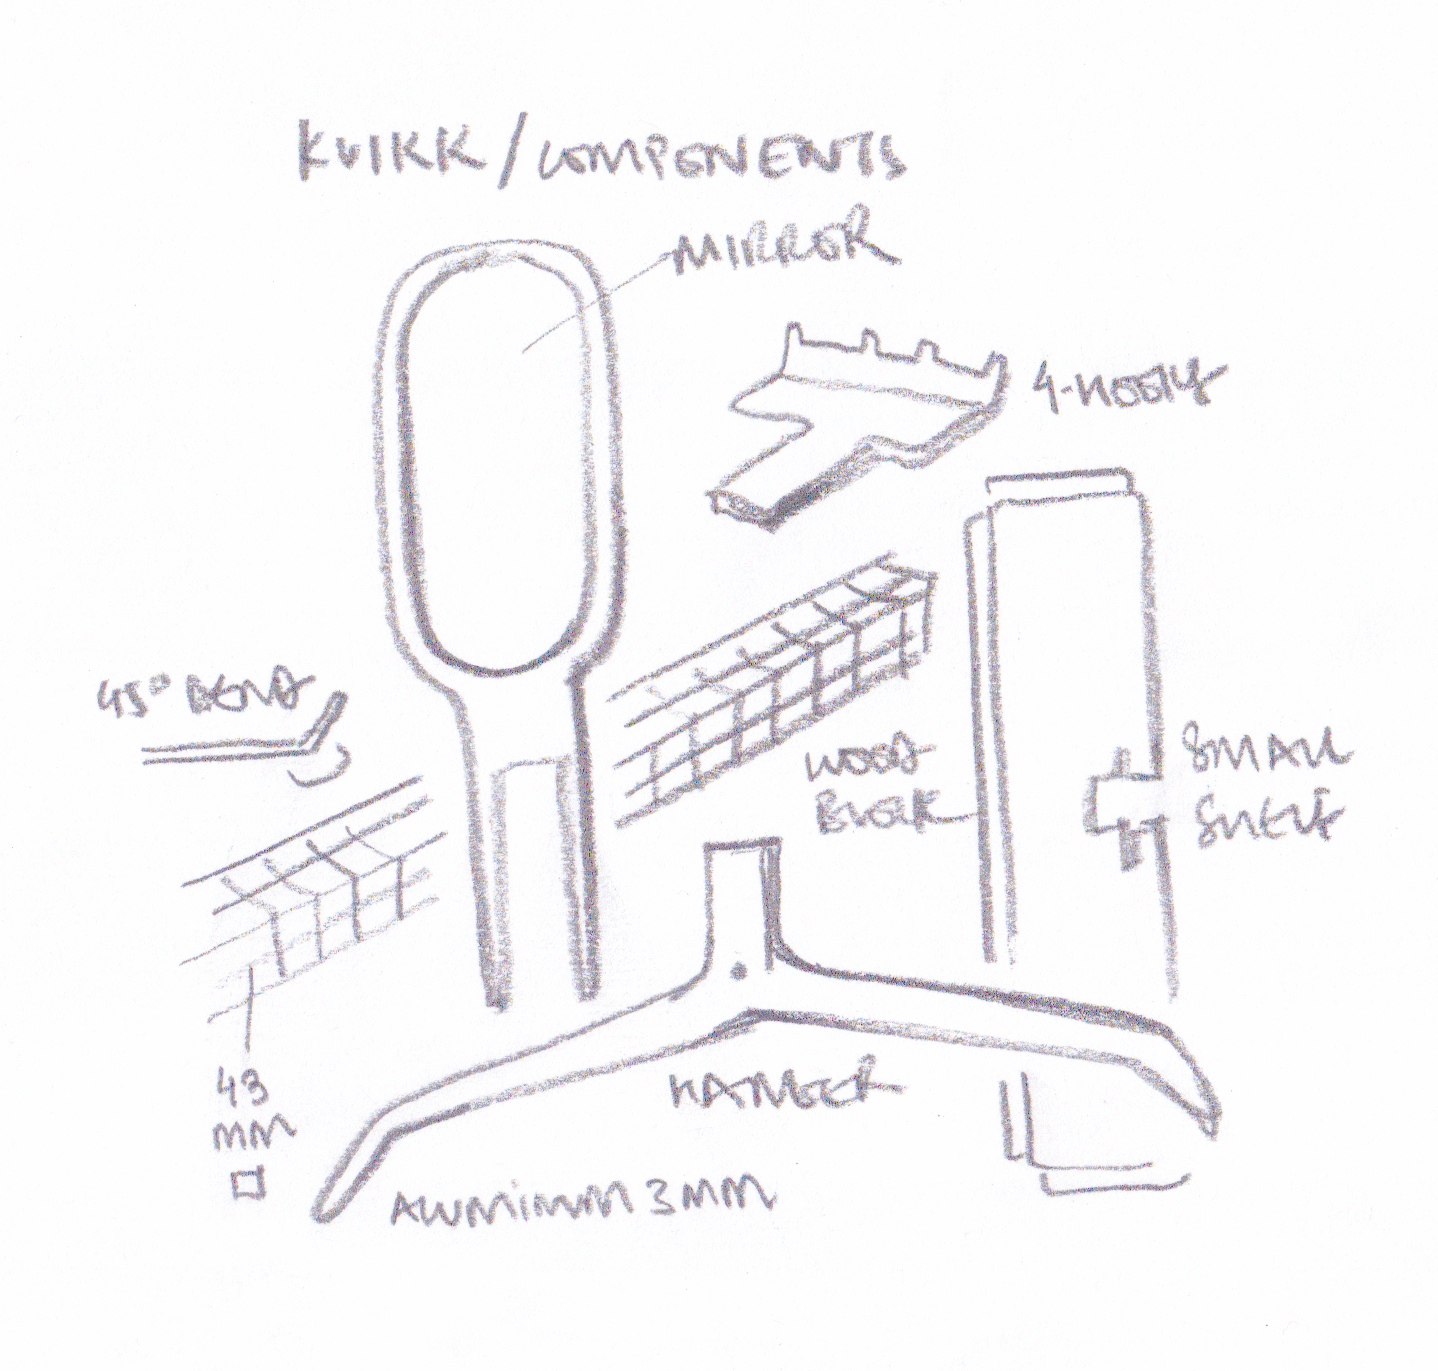 KVIKK/COMPONENTS
MIRROR
4-HOOKS
45° BEND
WOOD
BLOCK
SMALL
SHELF
43
MM
HANGER
ALUMINIUM 3MM